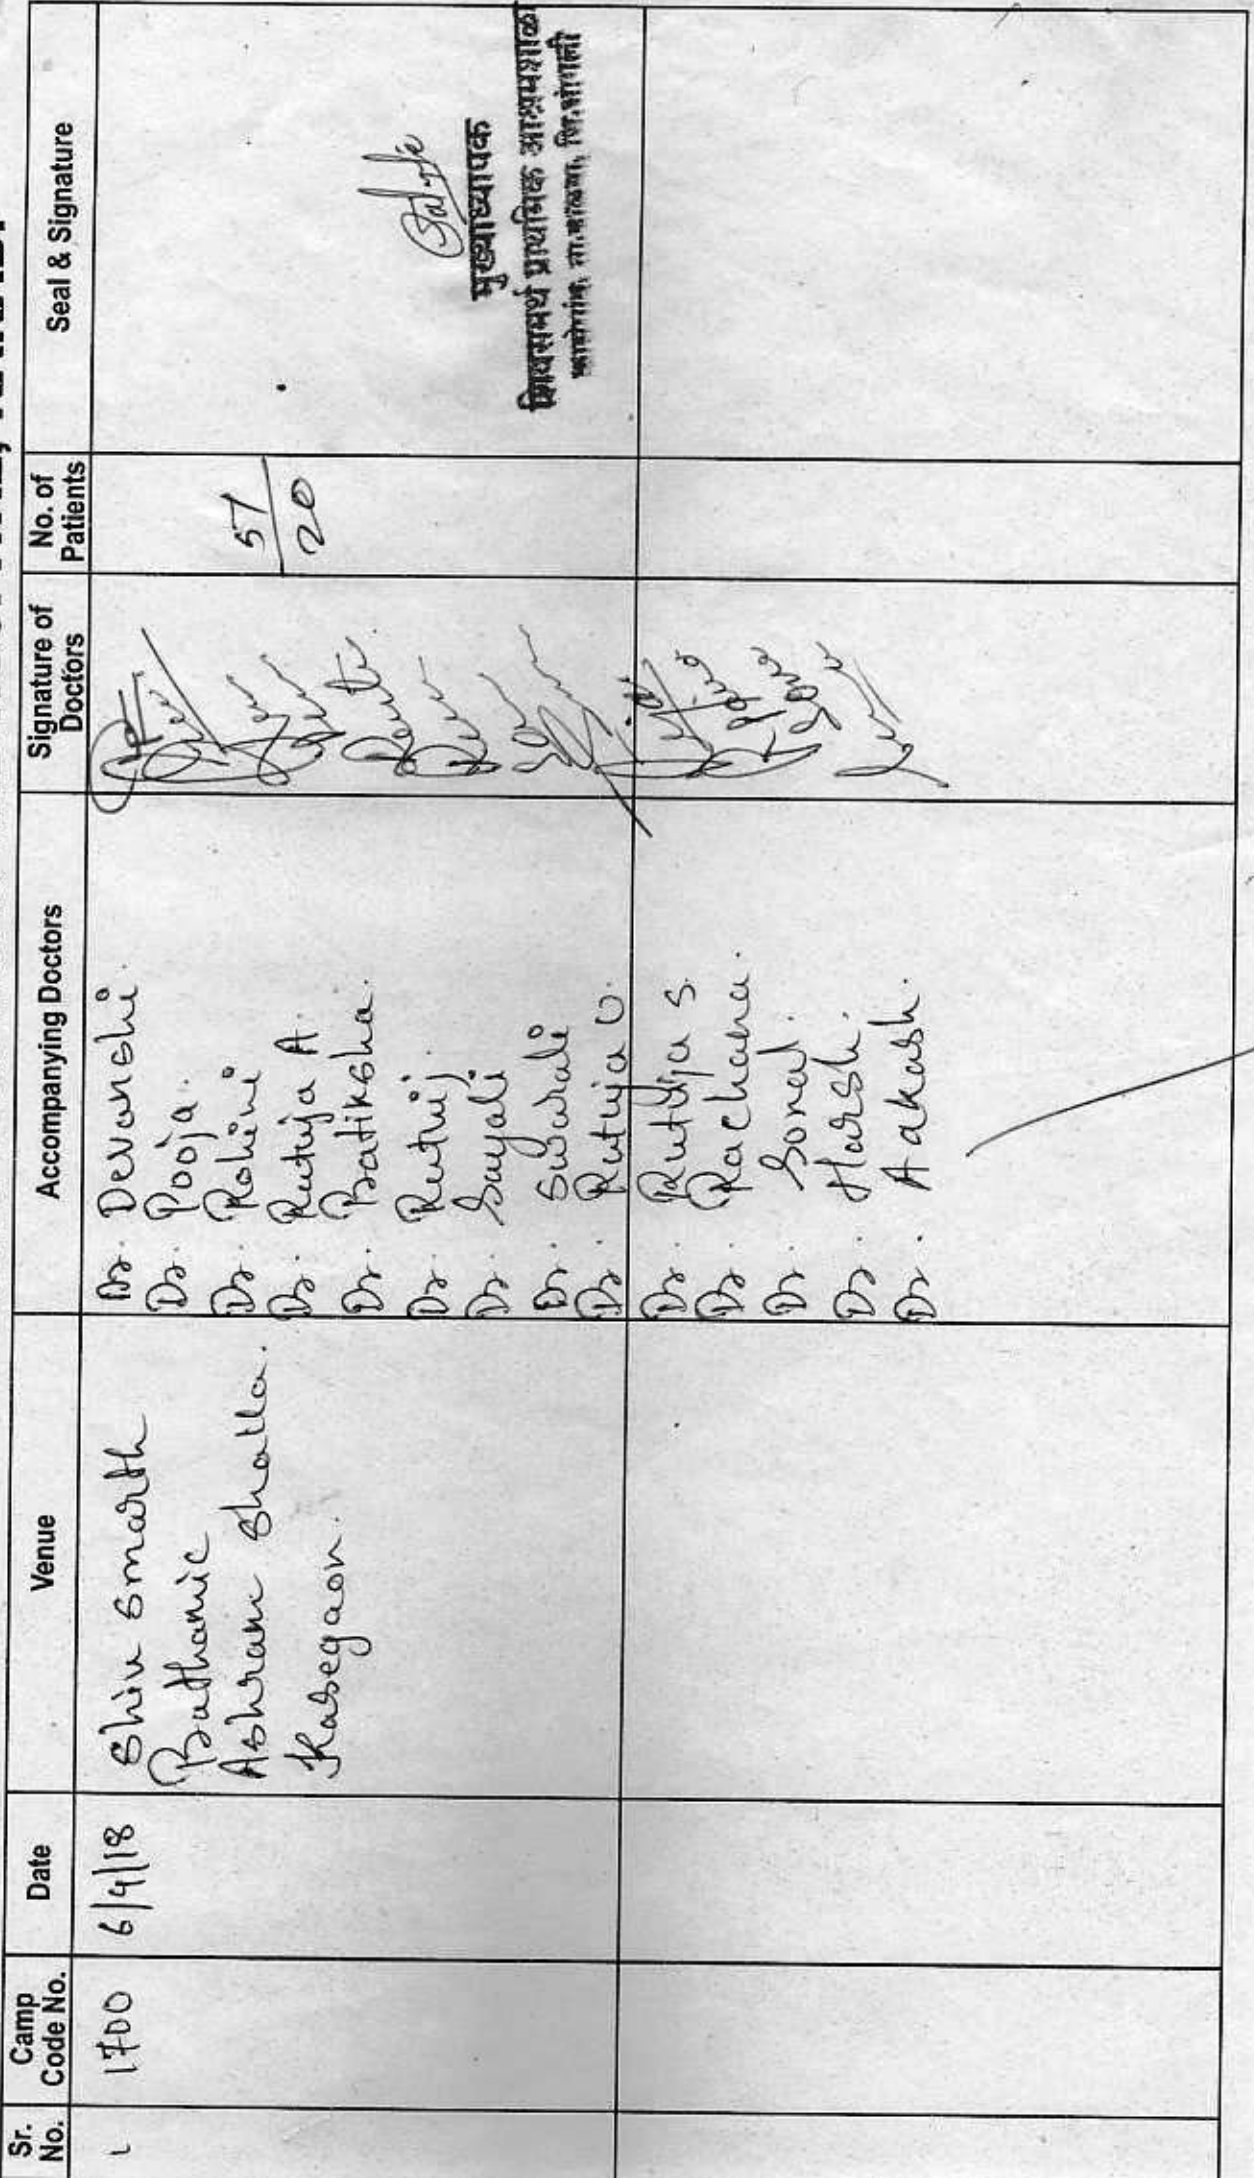 Sr. No.
Camp Code No.
Date
Venue
Accompanying Doctors
Signature of Doctors
No. of Patients
Seal & Signature
1
1700
6/4/18
Shiv Smarth
Prathamic
Ashram Shalla.
Kasegaon.
Dr. Devanshi.
Dr. Pooja.
Dr. Rohini
Dr. Rutuja A.
Dr. Pratiksha.
Dr. Rutuj.
Dr. Sayali
Dr. Swarali
Dr. Rutuja U.
Dr. Rutuja S.
Dr. Rachana.
Dr. Sonal.
Dr. Harsh.
Dr. Aakash.
57
20
मुख्याध्यापक
शिवसमर्थ प्राथमिक आश्रमशाळा
कासेगांव, ता.वाळवा, जि.सांगली